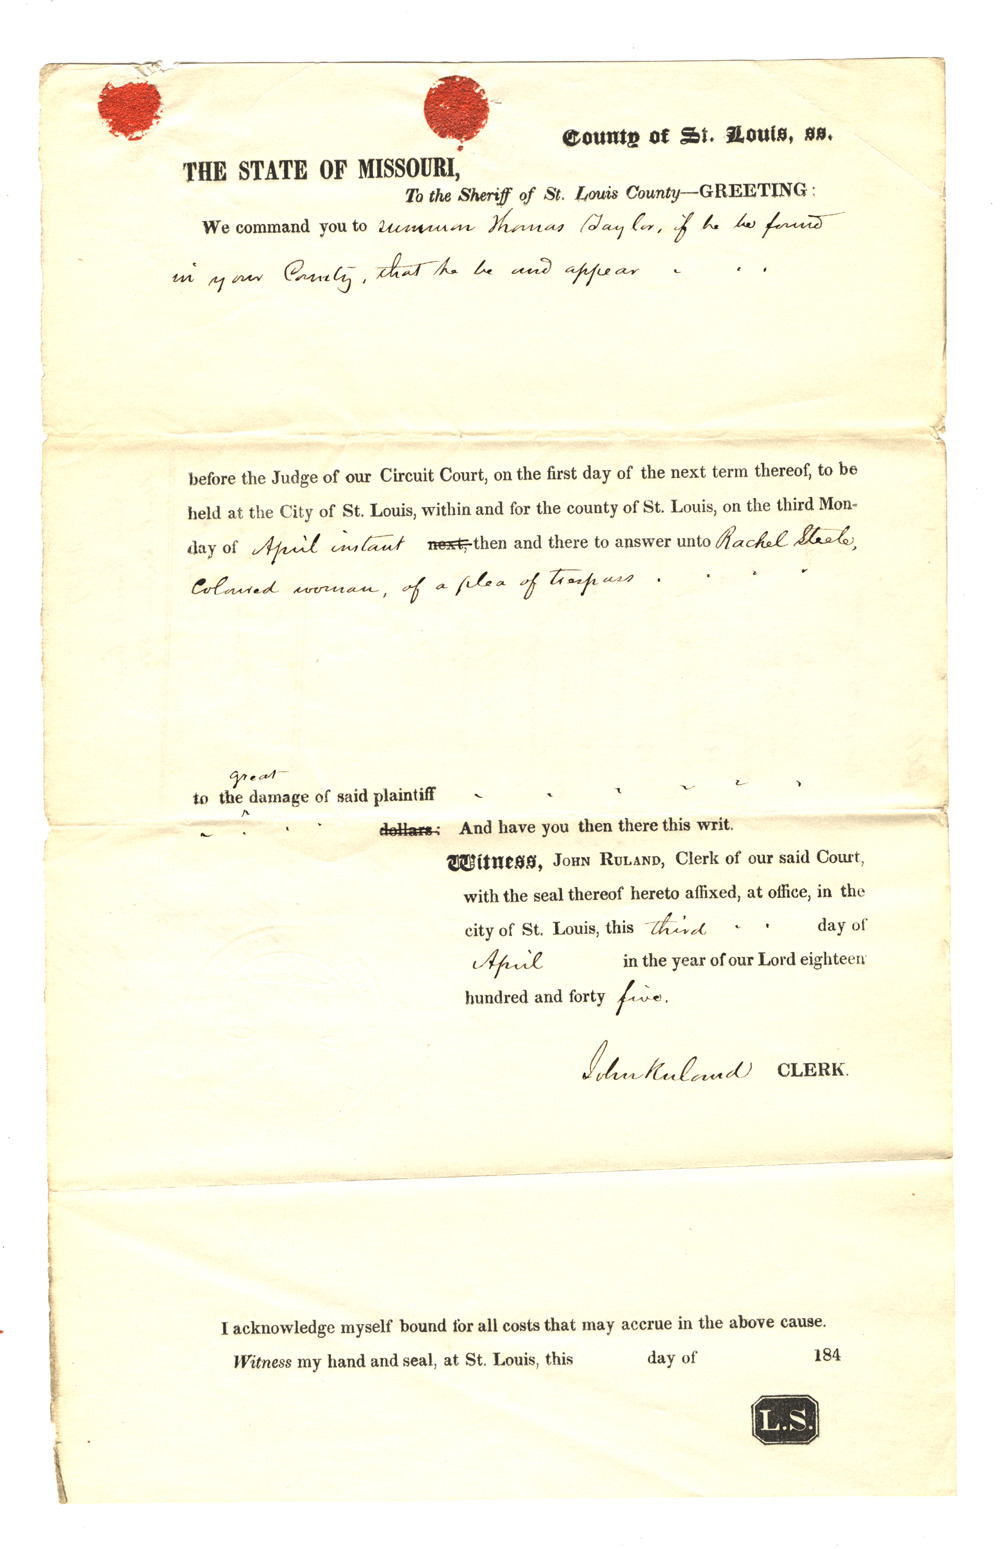 County of St. Louis, ss.
THE STATE OF MISSOURI,
To the Sheriff of St. Louis County—GREETING:
We command you to summon Thomas Taylor, if he be found
in your County, that he be and appear
before the Judge of our Circuit Court, on the first day of the next term thereof, to be
held at the City of St. Louis, within and for the county of St. Louis, on the third Mon-
day of April instant next, then and there to answer unto Rachel Steele,
Coloured woman, of a plea of trespass
great
to the damage of said plaintiff
dollars: And have you then there this writ.
Witness, JOHN RULAND, Clerk of our said Court,
with the seal thereof hereto affixed, at office, in the
city of St. Louis, this third day of
April in the year of our Lord eighteen
hundred and forty five.
John Ruland CLERK.
I acknowledge myself bound for all costs that may accrue in the above cause.
Witness my hand and seal, at St. Louis, this day of 184
L.S.